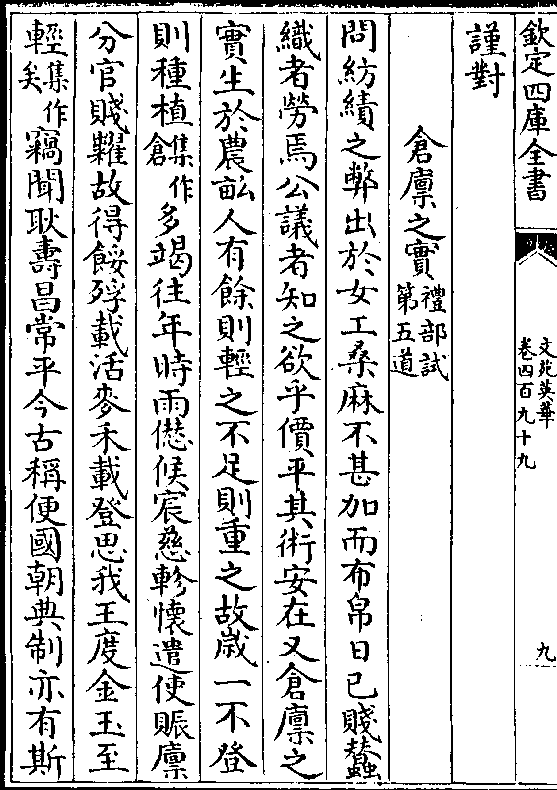 欽定四庫全書
文苑英華
卷四百九十九
九
謹對
倉廪之實禮部試第五道
問紡績之弊出於女工桑麻不甚加而布帛日已賤蠶
織者勞焉公議者知之欲乎價平其術安在又倉廪之
實生於農畝人有餘則輕之不足則重之故歳一不登
則種植集作倉多竭往年時雨愆候宸慈軫懷遣使賑廪
分官賤糶故得餒殍載活麥禾載登思我王度金玉至
輕集作矣竊聞耿壽昌常平今古稱便國朝典制亦有斯